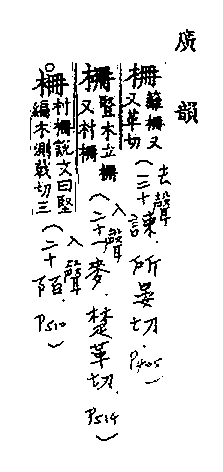 廣韻
柵籬柵又叉革切(去聲三十諫.所晏切.P405)
柵豎木立柵又村柵(入聲二十一麥.楚革切.P514)
柵村柵說文曰堅編木測戟切三(入聲二十陌.P510)